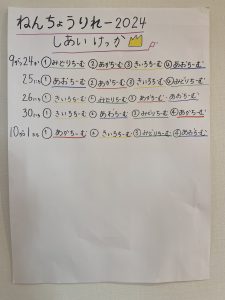 ねんちょうりれー2024
しあいけっか
9がつ24か ①みどりちーむ ②あかちーむ ③きいろちーむ ④あおちーむ
25にち ①あおちーむ ②あかちーむ ③きいろちーむ ④みどりちーむ
26にち ①きいろちーむ ②みどりちーむ ③あかちーむ ④あおちーむ
30にち ①きいろちーむ ②あおちーむ ③みどりちーむ ④あかちーむ
10がつ1にち ①あかちーむ ②きいろちーむ ③みどりちーむ ④あおちーむ